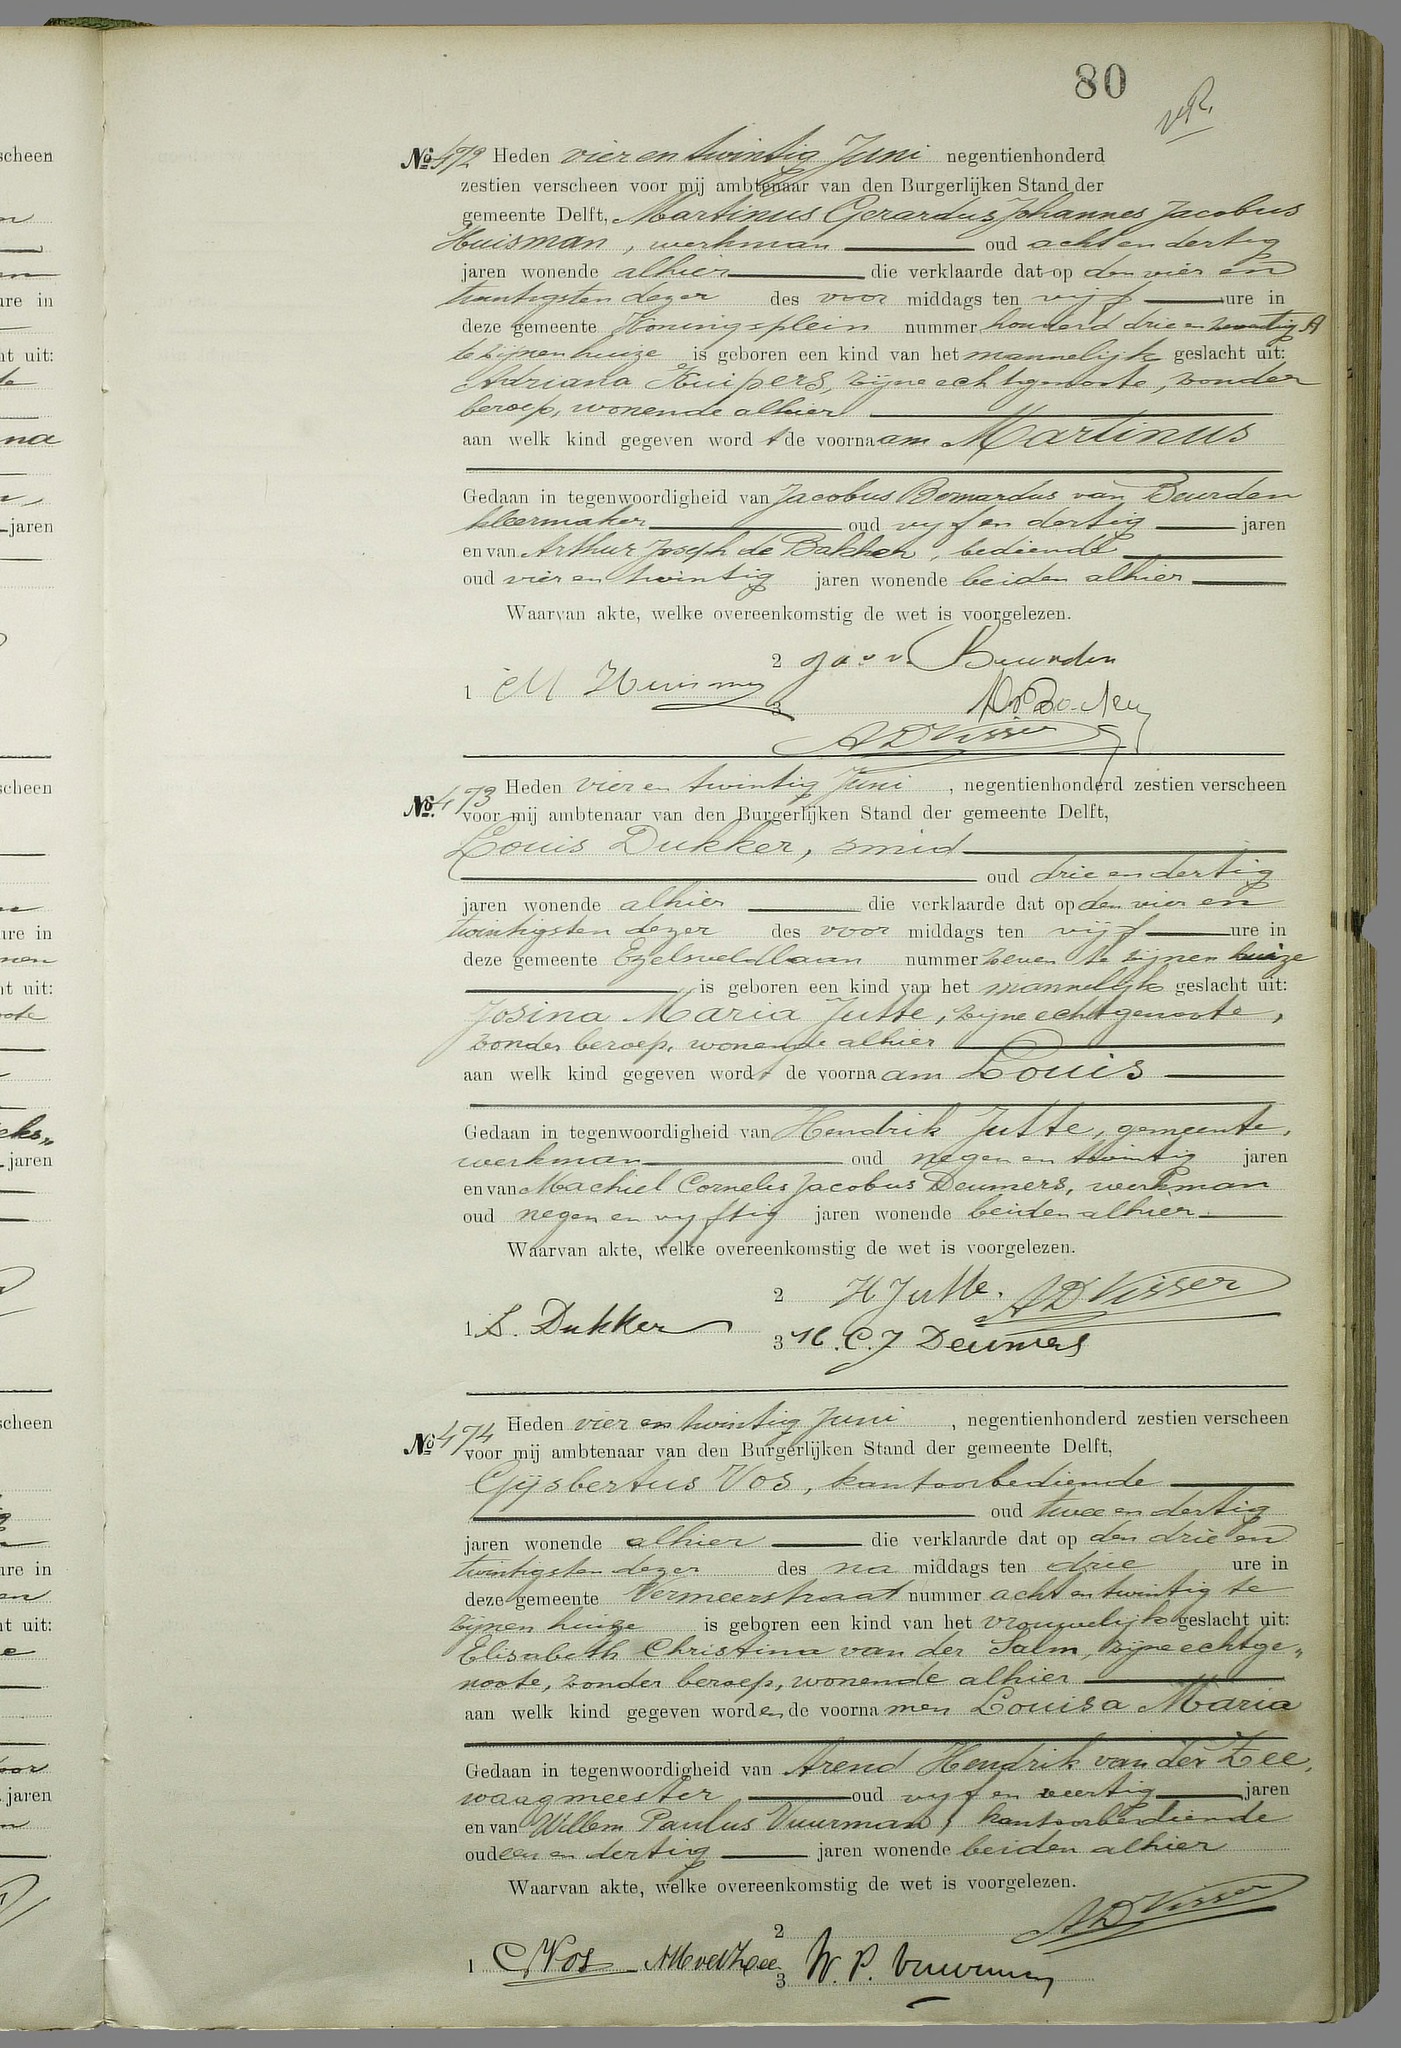 80
v.R.
No 472 Heden vier en twintig Juni negentienhonderd
zestien verscheen voor mij ambtenaar van den Burgerlijken Stand der
gemeente Delft, Martinus Gerardus Johannes Jacobus
Huisman, werkman oud acht en dertig
jaren wonende alhier die verklaarde dat op den vier en
twintigsten dezer des voor middags ten vijf ure in
deze gemeente Koningsplein nummer honderd drie en twintig A
te zijnen huize is geboren een kind van het mannelijk geslacht uit:
Adriana Kuipers, zijne echtgenoote, zonder
beroep, wonende alhier
aan welk kind gegeven wordt de voornaam Martinus
Gedaan in tegenwoordigheid van Jacobus Bernardus van Buurden
kleermaker oud vijf en dertig jaren
en van Arthur Joseph de Bakker, bediende
oud vier en twintig jaren wonende beiden alhier
Waarvan akte, welke overeenkomstig de wet is voorgelezen.
2 Buurden
1 M Huisman
3
AD Visser
No. 473 Heden vier en twintig Juni, negentienhonderd zestien verscheen
voor mij ambtenaar van den Burgerlijken Stand der gemeente Delft,
Louis Dukker, smid
oud drie en dertig
jaren wonende alhier die verklaarde dat op den vier en
twintigsten dezer des voor middags ten vijf ure in
deze gemeente Ezelsveldlaan nummer zeven te zijnen huize
is geboren een kind van het mannelijk geslacht uit:
Josina Maria Jutte, zijne echtgenoote,
zonder beroep, wonende alhier
aan welk kind gegeven wordt de voornaam Louis
Gedaan in tegenwoordigheid van Hendrik Jutte, gemeente,
werkman oud negen en twintig jaren
en van Machiel Cornelis Jacobus Deumers, werkman
oud negen en vyftig jaren wonende beiden alhier
Waarvan akte, welke overeenkomstig de wet is voorgelezen.
2 H Jutte. AD Visser
1 L. Dukker
3 M. C. J Deumers
No 474 Heden vier en twintig Juni, negentienhonderd zestien verscheen
voor mij ambtenaar van den Burgerlijken Stand der gemeente Delft,
Gijsbertus Vos, kantoorbediende
oud twee en dertig
jaren wonende alhier die verklaarde dat op den drie en
twintigsten dezer des na middags ten drie ure in
deze gemeente Vermeerstraat nummer acht en twintig te
zijnen huize is geboren een kind van het vrouwelijk geslacht uit:
Elisabeth Christina van der Salm, zijne echtge„
noote, zonder beroep, wonende alhier
aan welk kind gegeven worden de voornamen Louisa Maria
Gedaan in tegenwoordigheid van Arend Hendrik van der Zee,
waagmeester oud vijf en veertig jaren
en van Willem Paulus Vuurman, kantoorbediende
oud een en dertig jaren wonende beiden alhier
Waarvan akte, welke overeenkomstig de wet is voorgelezen.
AD Visser
2
1 G Vos AHvdZee
3 W. P. Vuurman